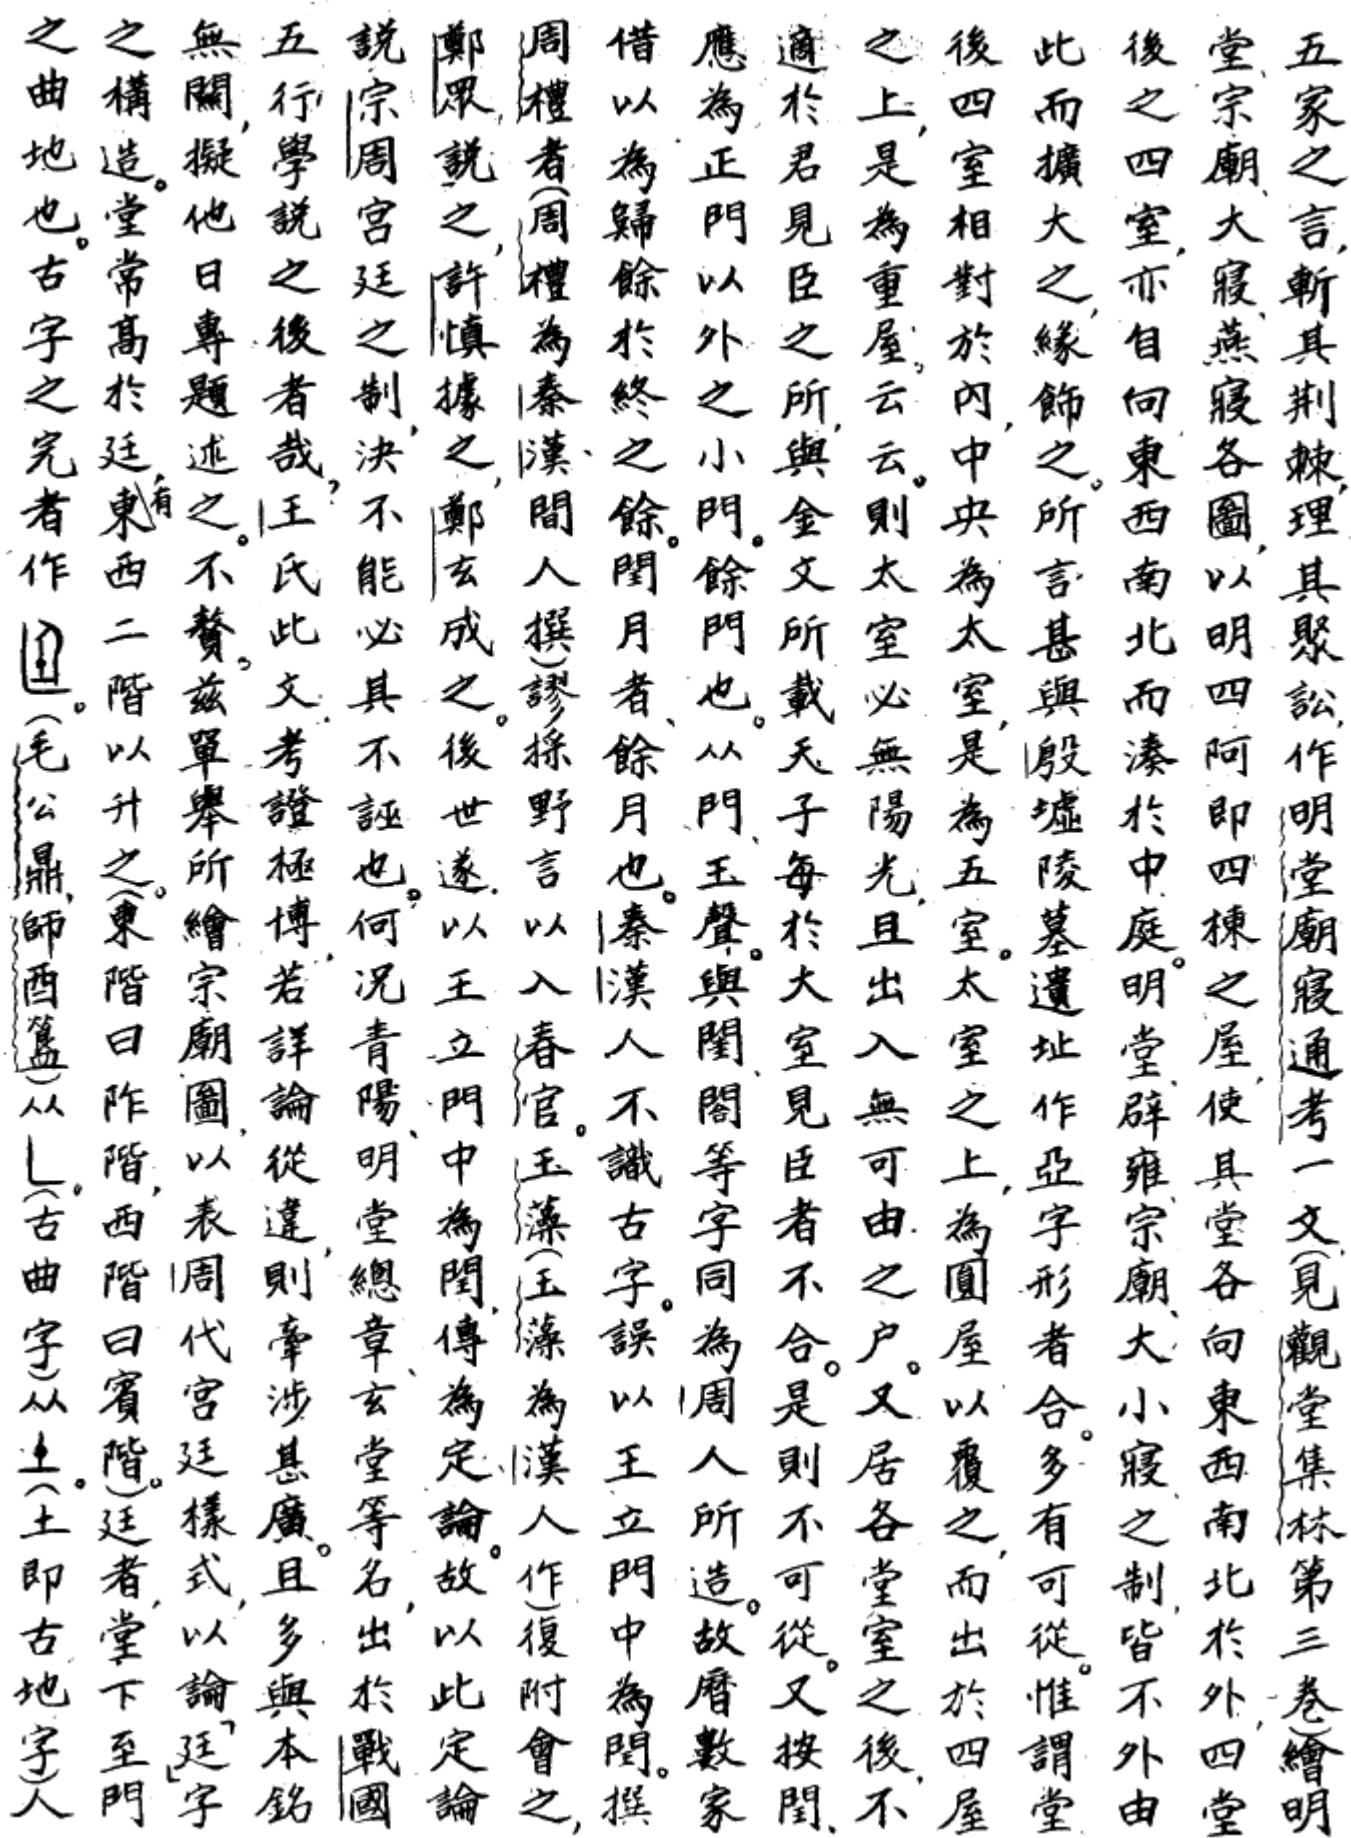 五家之言，斬其荆棘，理其聚訟，作明堂廟寢通考一文，（見觀堂集林第三卷）繪明
堂、宗廟、大寢、燕寢各圖，以明四阿即四棟之屋，使其堂各向東西南北於外，四堂
後之四室，亦自向東西南北而湊於中庭。明堂、辟雍、宗廟、大小寢之制，皆不外由
此而擴大之，緣飾之。所言甚與殷墟陵墓遺址作亞字形者合。多有可從。惟謂堂
後四室相對於內，中央為太室，是為五室。太室之上，為圓屋以覆之，而出於四屋
之上，是為重屋，云云。則太室必無陽光，且出入無可由之户。又居各堂室之後，不
適於君見臣之所，與金文所載天子每於大室見臣者不合。是則不可從。又按閏、
應為正門以外之小門。餘門也。从門、玉聲。與閨、閤等字同為周人所造。故曆數家
借以為歸餘於終之餘。閏月者、餘月也。秦漢人不識古字。誤以王立門中為閏。撰
周禮者（周禮為秦漢間人撰）謬採野言以入春官。玉藻（玉藻為漢人作）復附會之，
鄭眾説之，許慎據之，鄭玄成之。後世遂以王立門中為閏，傳為定論。故以此定論
説宗周宫廷之制，決不能必其不誣也。何況青陽、明堂、總章、玄堂等名，出於戰國
五行學説之後者哉，王氏此文，考證極博，若詳論從違，則牽涉甚廣。且多與本銘
無關，擬他日專題述之。不贅。兹單舉所繪宗廟圖，以表周代宮廷樣式，以論「廷」字
之構造。堂常高於廷，有東西二階以升之。（東階曰阼階，西階曰賓階。）廷者，堂下至門
之曲地也。古字之完者作。（毛公鼎，師酉簋）从乚。（古曲字）从土。（土即古地字）人